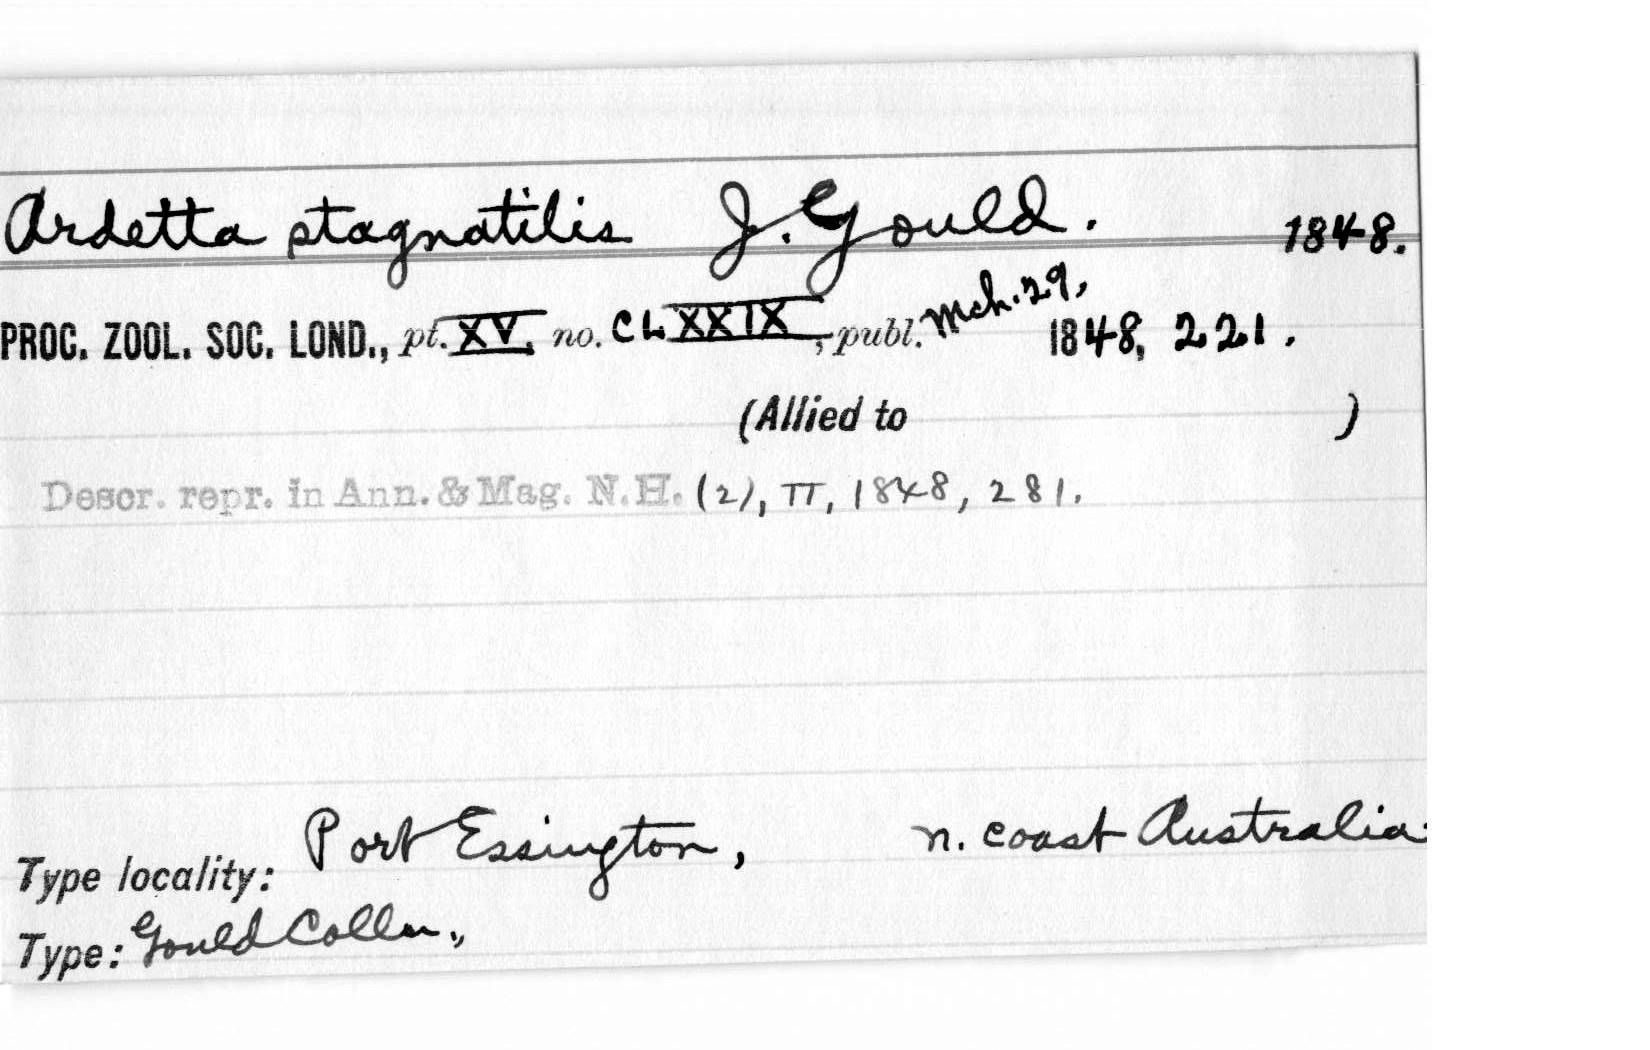 Ardetta stagnatilis J. Gould. 1848.
PROC. ZOOL. SOC. LOND., pt. XV. no. CLXXIX, publ. Mch. 29, 1848, 221.
(Allied to )
Descr. repr. in Ann. & Mag. N.H. (2), II, 1848, 281.
Type locality: Port Essington, n. coast Australia.
Type: Gould Colln.,